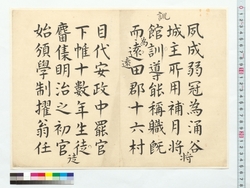 夙成弱冠為涌谷
将
城主所用補月将
訓
館訓導能稱職既
而為遠田郡十六村
遠
目代安政中罷官
下帷十數年生徒
徒
麕集明治之初官
始頒學制擢翁任